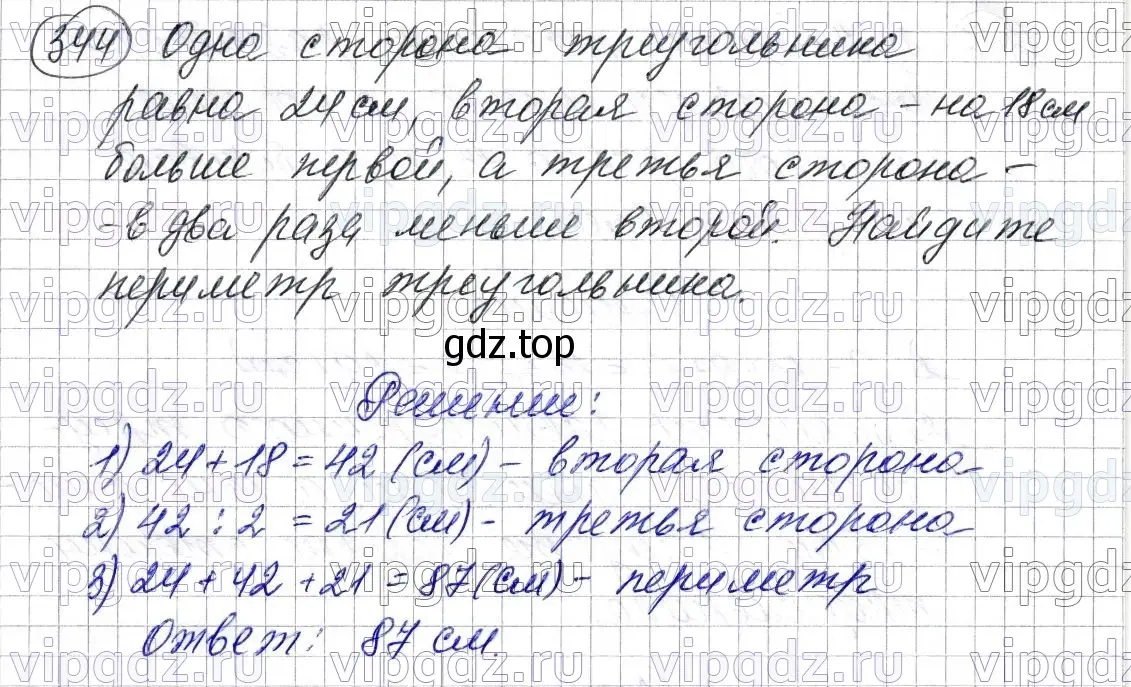 344 Одна сторона треугольника
равна 24 см, вторая сторона - на 18 см
больше первой, а третья сторона -
- в два раза меньше второй. Найдите
периметр треугольника.
gdz.top
Решение:
1) 24 + 18 = 42 (см) - вторая сторона
2) 42 : 2 = 21 (см) - третья сторона
3) 24 + 42 + 21 = 87 (см) - периметр
Ответ: 87 см.
vipgdz.ru